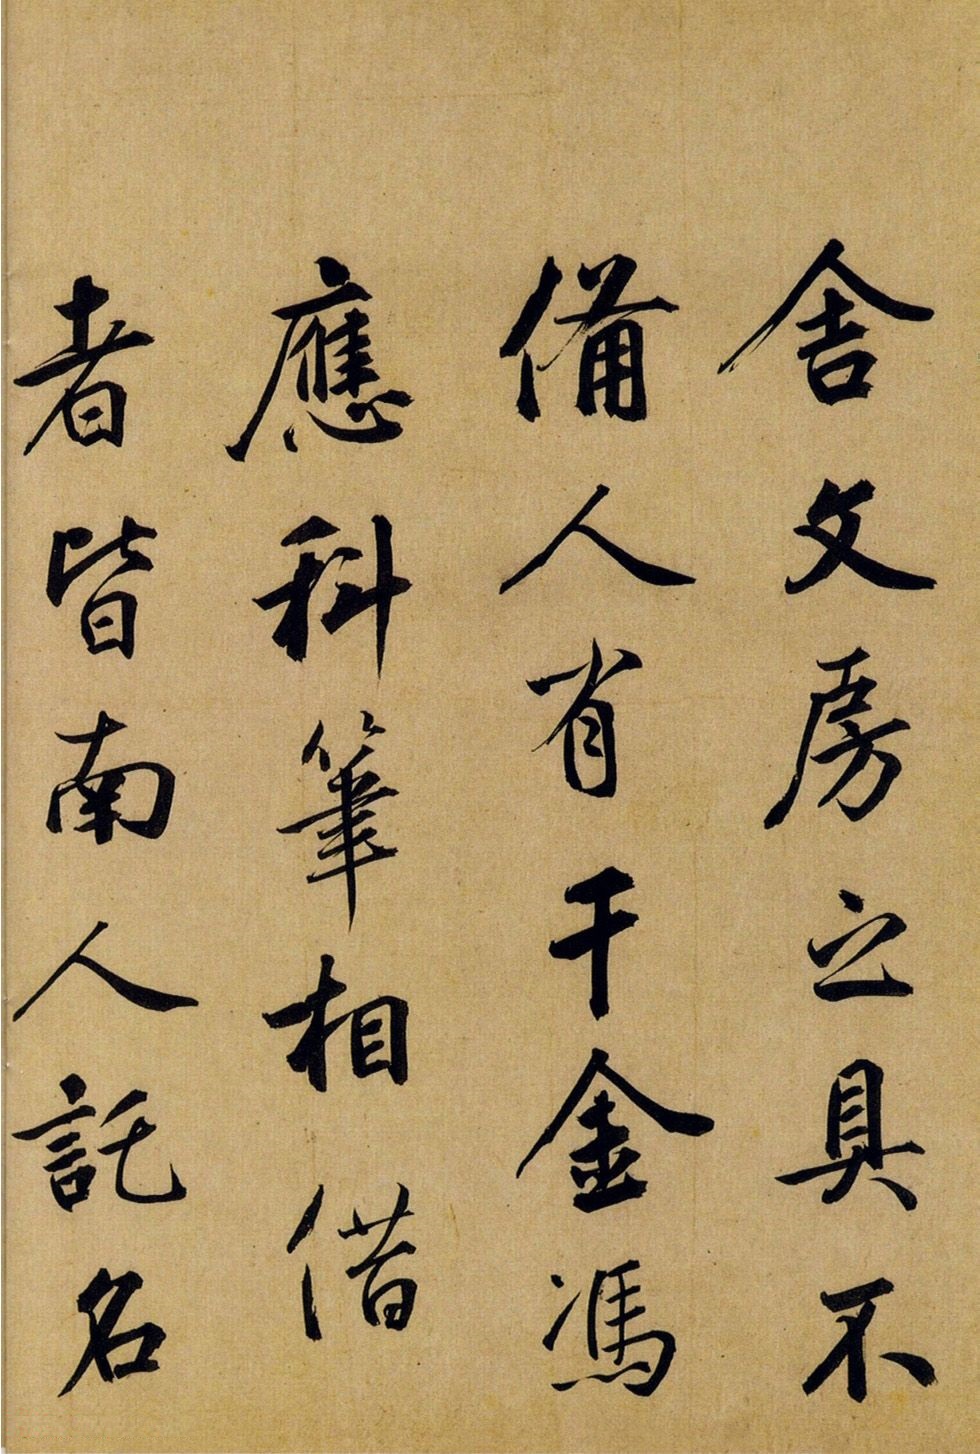 舍文房之具不
備人肯千金馮
應科筆相借
者皆南人託名